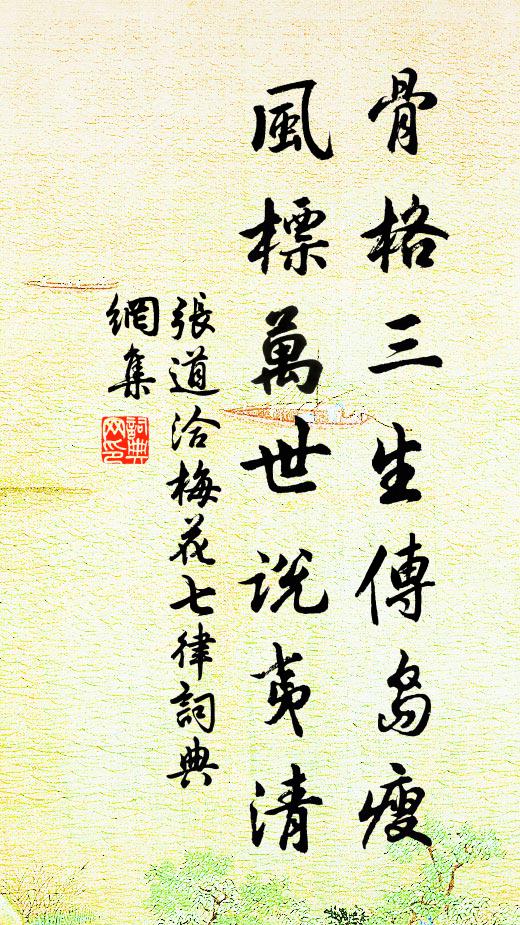 骨格三生傳島瘦
風標萬世説夷清
張道洽梅花七律詞典
網集
詞典
网印